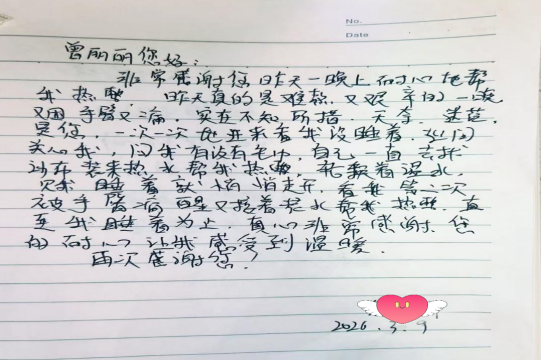 No.
Date
曾丽丽您好:
非常感谢您昨天一晚上耐心地帮
我热敷。昨天真的是难熬,又艰辛的一夜
又困手臂又痛,实在不知所措。天拿,
是您,一次一次地进来看我没睡着,
关心我,问我有没有充电,自己一直去找
装来热水帮我热敷,着温水,
我睡着就悄悄走开,看我第二次
被手臂痛又接着提水帮我热敷,直
至我睡着为止,真心非常感谢,您
的耐心让我感受到温暖。
再次感谢您!
2026.3.9